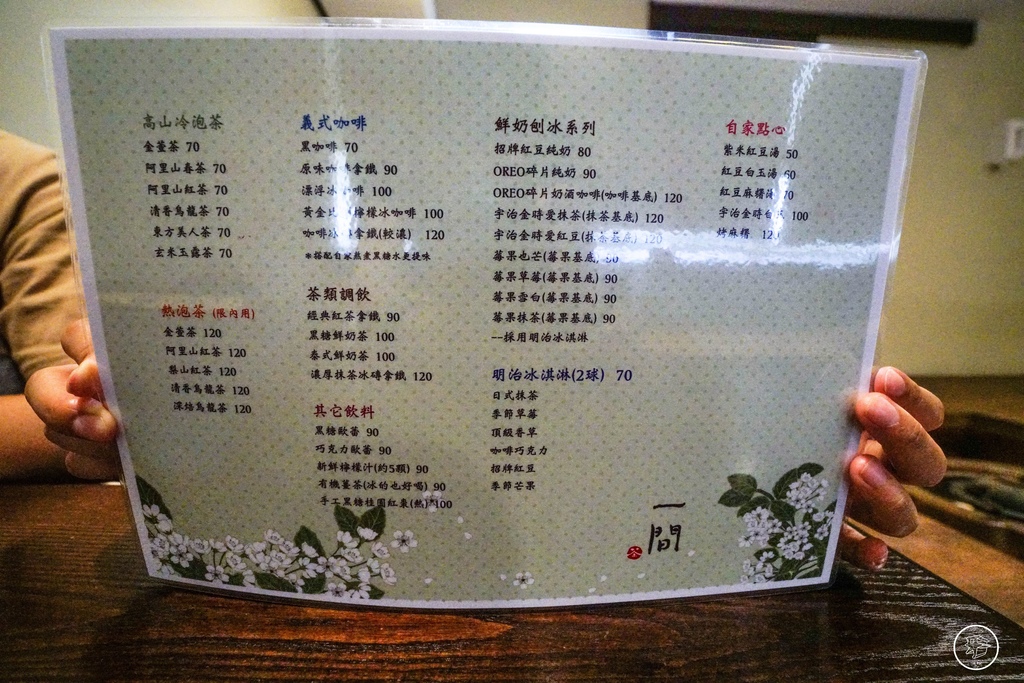 高山冷泡茶
金萱茶 70
阿里山春茶 70
阿里山紅茶 70
清香烏龍茶 70
東方美人茶 70
玄米玉露茶 70
熱泡茶 (限內用)
金萱茶 120
阿里山紅茶 120
梨山紅茶 120
清香烏龍茶 120
深焙烏龍茶 120
義式咖啡
黑咖啡 70
原味咖 拿鐵 90
漂浮冰 啡 100
黃金 檸檬冰咖啡 100
咖啡冰 拿鐵(較濃) 120
*搭配自家熬煮黑糖水更提味
茶類調飲
經典紅茶拿鐵 90
黑糖鮮奶茶 100
泰式鮮奶茶 100
濃厚抹茶冰磚拿鐵 120
其它飲料
黑糖歐蕾 90
巧克力歐蕾 90
新鮮檸檬汁(約5顆) 90
有機薑茶(冰的也好喝) 90
手工黑糖桂圓紅棗(熱) 100
鮮奶刨冰系列
招牌紅豆純奶 80
OREO碎片純奶 90
OREO碎片奶酒咖啡(咖啡基底) 120
宇治金時愛抹茶(抹茶基底) 120
宇治金時愛紅豆(抹茶基底) 120
莓果也芒(莓果基底) 90
莓果草莓(莓果基底) 90
莓果雪白(莓果基底) 90
莓果抹茶(莓果基底) 90
--採用明治冰淇淋
明治冰淇淋(2球) 70
日式抹茶
季節草莓
頂級香草
咖啡巧克力
招牌紅豆
季節芒果
自家點心
紫米紅豆湯 50
紅豆白玉湯 60
紅豆麻糬湯 70
宇治金時白 100
烤麻糬 120
一間